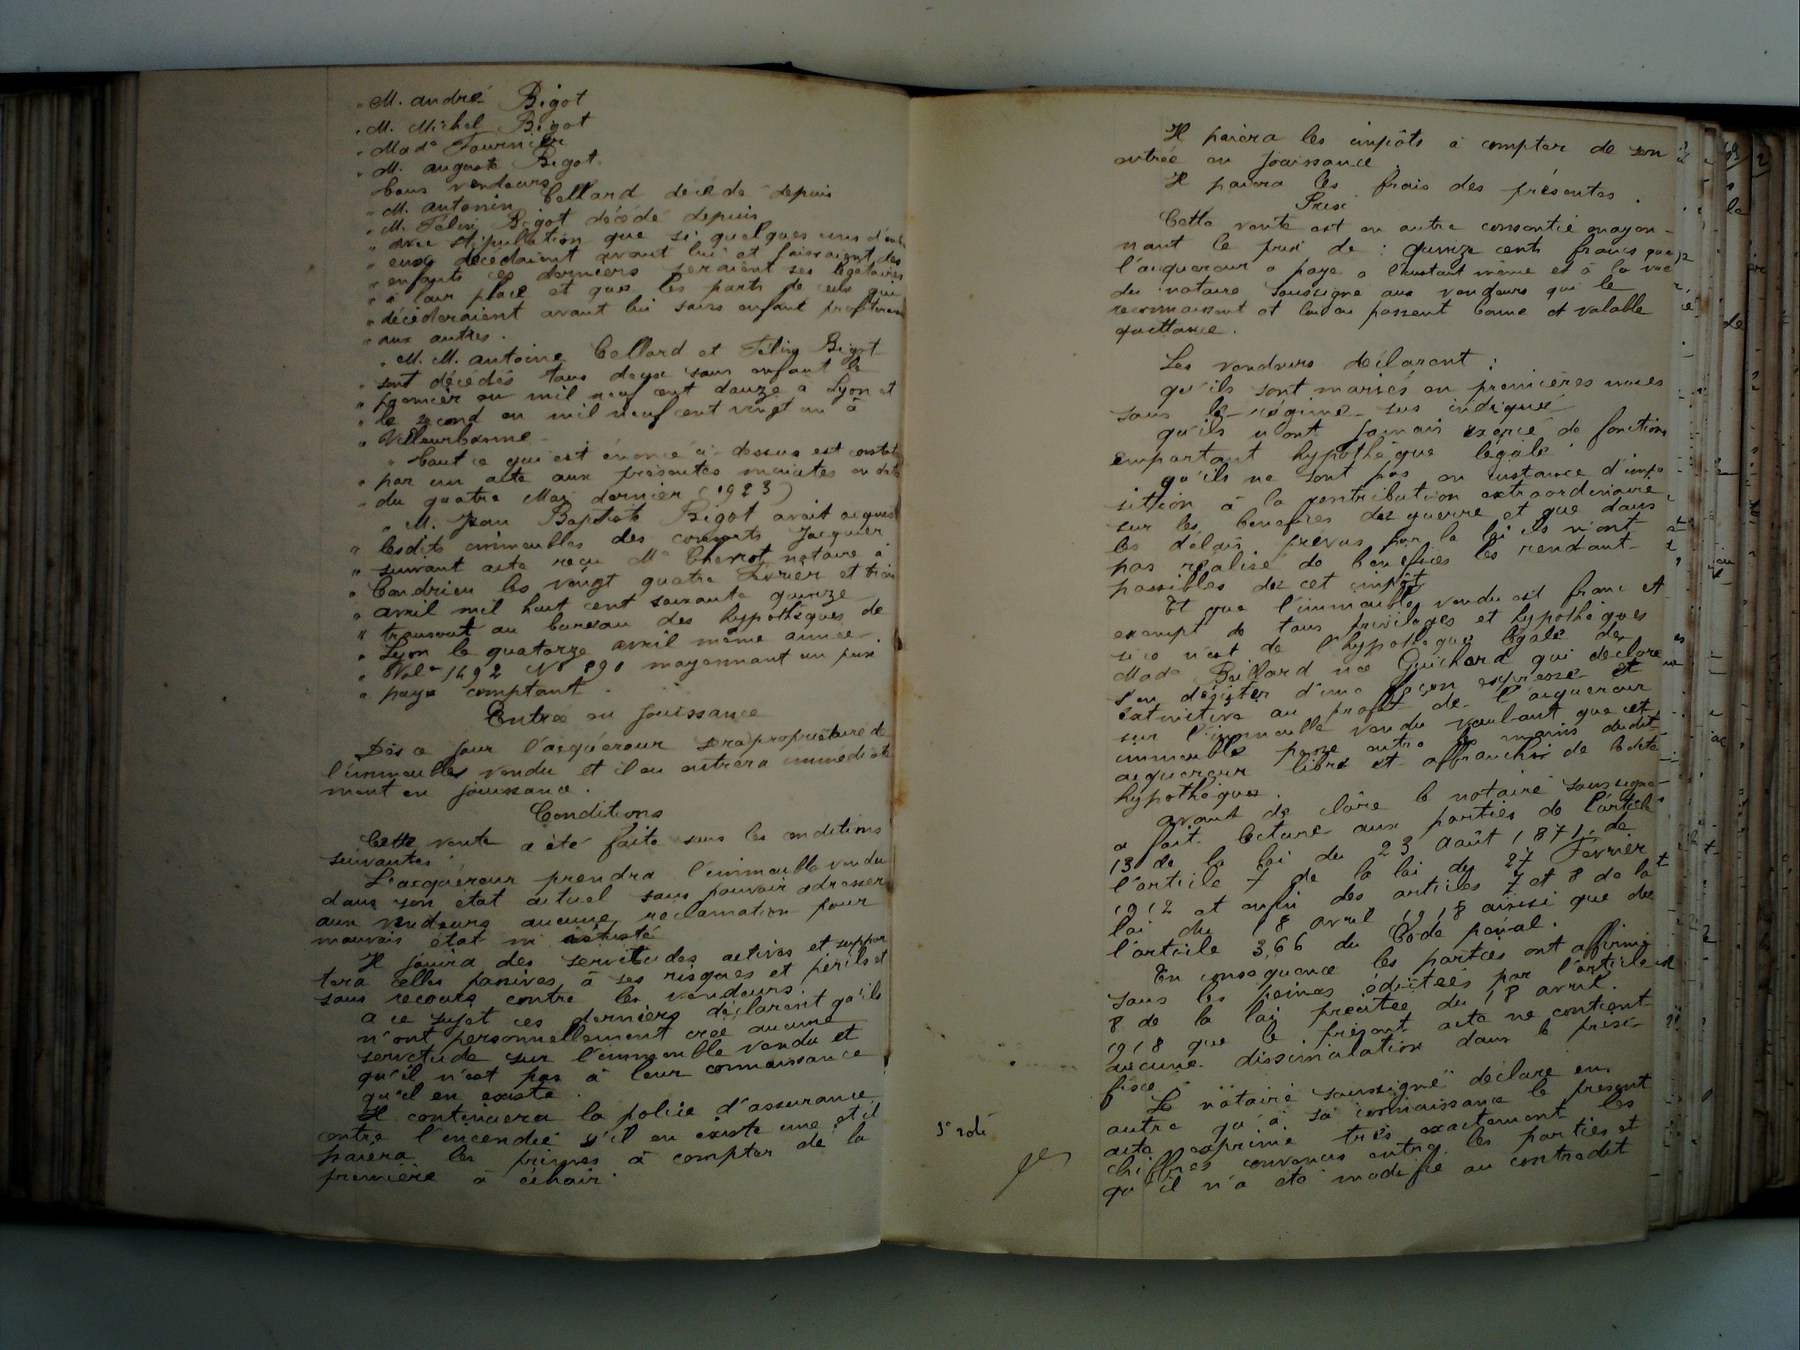 " M. André Bigot
" M. Michel Bigot
" Made Fournier
" M. Auguste Bigot
tous vendeurs
" M. Antonin Collard décédé depuis
" M. Félix Bigot décédé depuis
" avec stipulation que si quelques uns d'entre
" eux décédaient avant lui et laissaient des
" enfants ces derniers seraient ses légataires
" à leur place et que les parts de ceux qui
" décéderaient avant lui sans enfant profiteraient
" aux autres.
" M. M. Antoine Collard et Félix Bigot
" sont décédés tous deux sans enfant le
" premier en mil neuf cent douze à Lyon et
" le second en mil neuf cent vingt un à
" Villeurbanne.
" Tout ce qui est énoncé ci-dessus est constaté
" par un acte aux présentes minutes en date
" du quatre Mai dernier (1923)
" M. Jean Baptiste Bigot avait acquis
" lesdits immeubles des consorts Jacquier
" suivant acte reçu Me Chevrot notaire à
" Condrieu les vingt quatre Février et trois
" avril mil huit cent soixante quinze
" transcrit au bureau des hypothèques de
" Lyon le quatorze avril même année.
" Vol. 1492 No 890 moyennant un prix
" payé comptant.
Entrée en jouissance
Dès ce jour l'acquéreur sera propriétaire de
l'immeuble vendu et il en entrera immédiate
ment en jouissance.
Conditions
Cette vente a été faite sous les conditions
suivantes:
L'acquéreur prendra l'immeuble vendu
dans son état actuel sans pouvoir adresser
aux vendeurs aucune réclamation pour
mauvais état ni vétusté
Il jouira des servitudes actives et suppor
tera celles passives à ses risques et périls et
sans recours contre les vendeurs.
A ce sujet ces derniers déclarent qu'ils
n'ont personnellement créé aucune
servitude sur l'immeuble vendu et
qu'il n'est pas à leur connaissance
qu'il en existe.
Il continuera la police d'assurance
contre l'incendie s'il en existe une et il
paiera les primes à compter de la
première à échoir.
Il paiera les impôts à compter de son
entrée en jouissance.
Il paiera les frais des présentes.
Prix
Cette vente est en outre consentie moyen-
nant le prix de: quinze cents francs que
l'acquéreur a payé à l'instant même et à la vue
du notaire soussigné aux vendeurs qui le
reconnaissent et lui en passent bonne et valable
quittance.
Les vendeurs déclarent:
qu'ils sont mariés en premières noces
sous le régime sus indiqué
qu'ils n'ont jamais exercé de fonctions
emportant hypothèque légale
qu'ils ne sont pas en instance d'impo
sition à la contribution extraordinaire
sur les bénéfices de guerre et que dans
les délais prévus par la loi ils n'ont
pas réalisé de bénéfices les rendant
passibles de cet impôt
Et que l'immeuble vendu est franc et
exempt de tous privilèges et hypothèques
si ce n'est de l'hypothèque légale de
Made née Guichard qui déclare
s'en désister d'une façon expresse et
extinctive au profit de l'acquéreur
sur l'immeuble vendu voulant que cet
immeuble passe entre les mains dudit
acquéreur libre et affranchi de ladite
hypothèque.
Avant de clore le notaire soussigné
a fait lecture aux parties de l'article
13 de la loi du 23 Août 1871, de
l'article 7 de la loi du 27 Février
1912 et enfin des articles 7 et 8 de la
loi du 18 avril 1918 ainsi que de
l'article 366 du Code pénal.
En conséquence les parties ont affirmé
sous les peines édictées par l'article
8 de la loi précitée du 18 avril
1918 que le présent acte ne contient
aucune dissimulation dans le prix
fixé.
Le notaire soussigné déclare en
outre qu'à sa connaissance le présent
acte exprime très exactement les
chiffres convenus entre les parties et
qu'il n'a été modifié ou contredit